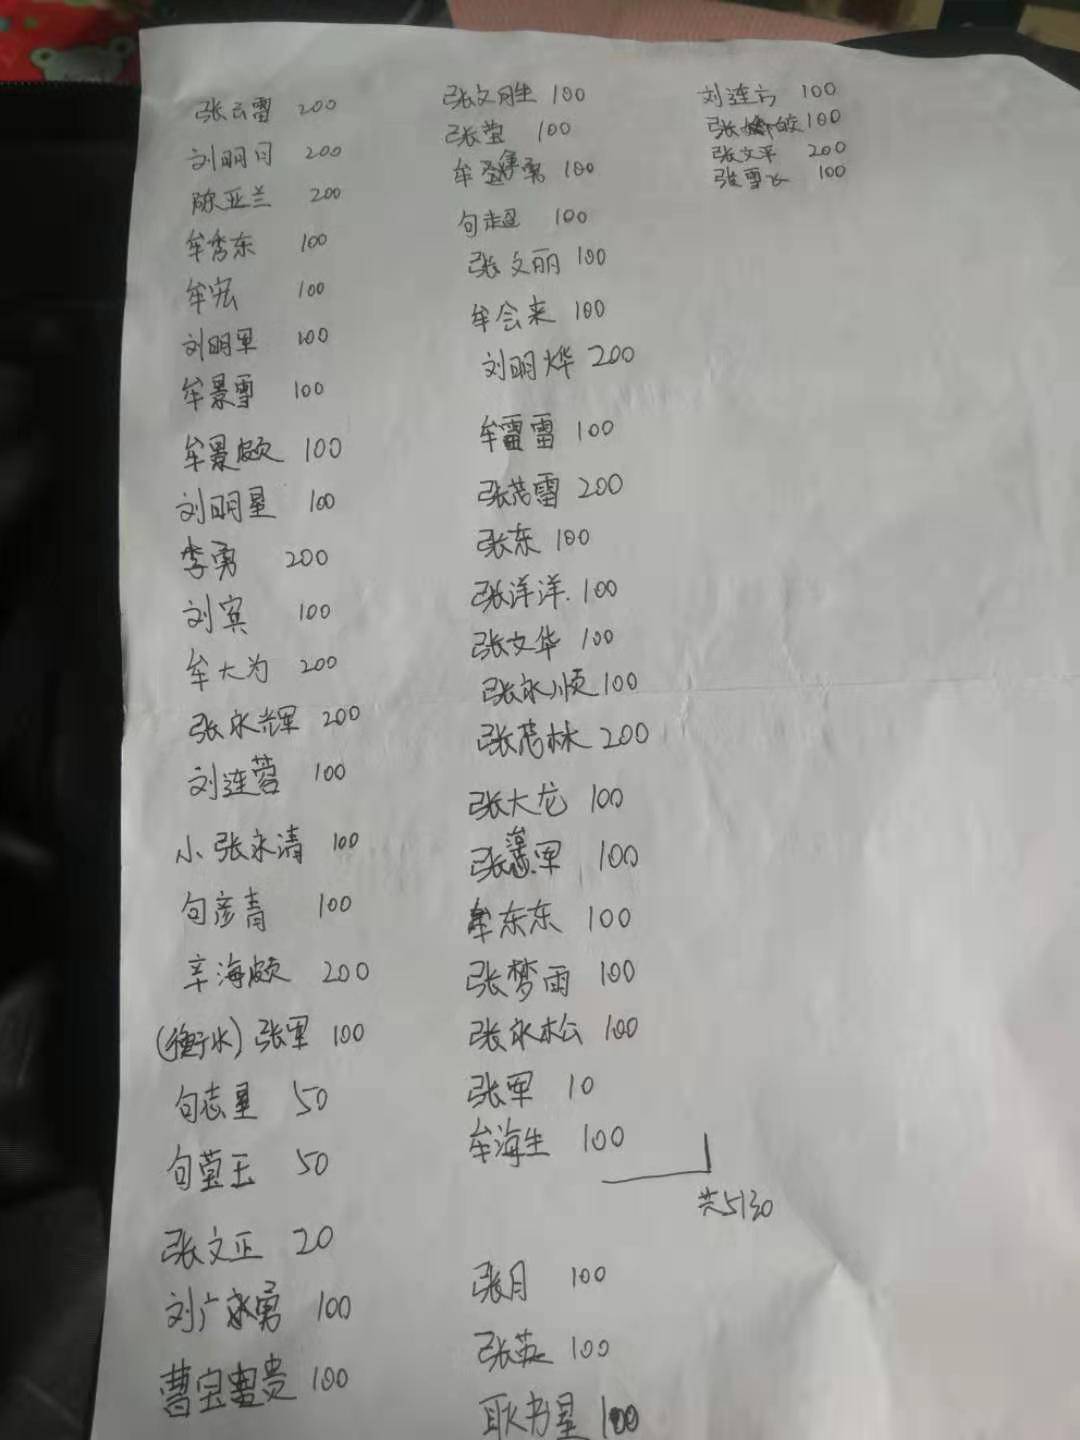 张云雷 200
刘明月 200
陈亚兰 200
牟秀东 100
牟宏 100
刘明军 100
牟景雪 100
牟景颇 100
刘明星 100
李勇 200
刘宾 100
牟大为 200
张永辉 200
刘连蓉 100
小张永清 100
句彦青 100
辛海颇 200
(衡水) 张军 100
句志星 50
句莹玉 50
张文正 20
刘广勇 100
曹宝贵 100
张文胜 100
张莹 100
牟勇 100
句超 100
张文丽 100
牟会来 100
刘明烨 200
牟雷雷 100
张茂雷 200
张东 100
张洋洋. 100
张文华 100
张永顺 100
张茂林 200
张大龙 100
张军 100
牟东东 100
张梦雨 100
张永松 100
张军 10
牟海生 100
共5130
张月 100
张英 100
耿书星 100
刘连方 100
张皎 100
张文平 200
张雪飞 100